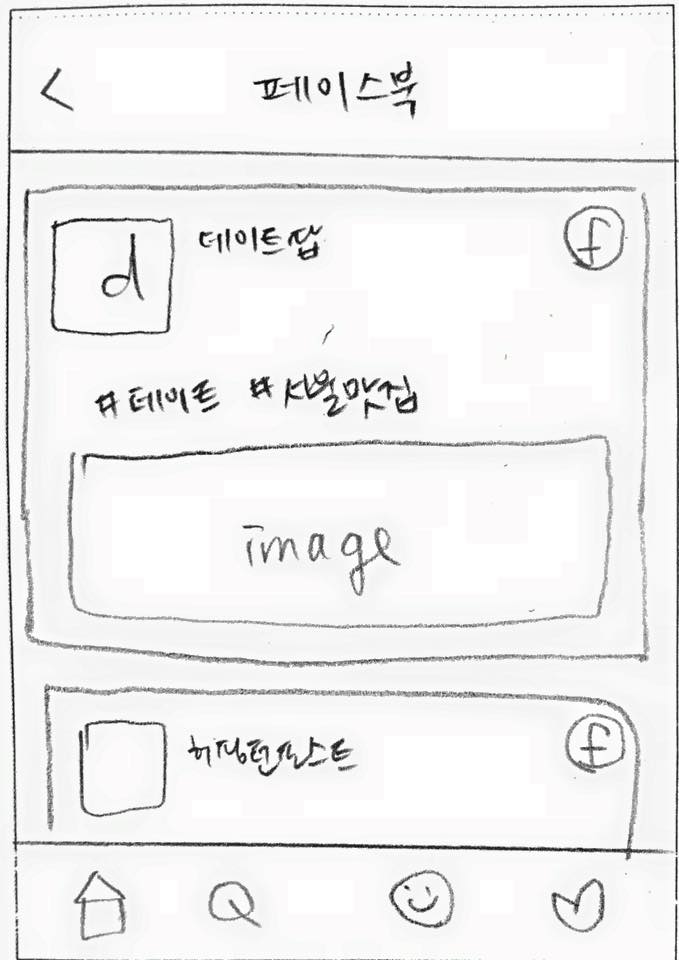 < 페이스북
d 데이트팝 f
#데이트 #서울맛집
image
허핑턴포스트 f